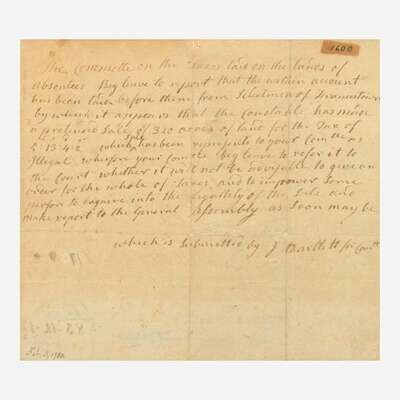 1600
The Committe on the Taxes laid on the lands of
absentees Beg leave to report that the within account
has been laid before them from Selectmen of
by which it appears that the Constable has made
a pretended Sale of 320 acres of land for the Tax of
£ 13:4:2 which Sale has been represented to your Comtte as
Illegal, wherefore your Comtte Beg leave to refer it to
the Court whether it will not be advisable to give an
order for the whole of Taxes, and to impower Some
person to enquire into the legality of the Sale and
make report to the General Assembly as Soon may be
which is Submitted by J Bartlett for Comtt